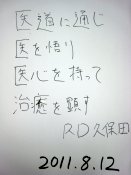 医道に通じ
医を悟り
医心を持って
治癒を顕す
RD久保田
2011.8.12